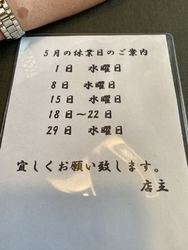 5月の休業日のご案内
1日 水曜日
8日 水曜日
15日 水曜日
18日〜22日
29日 水曜日
宜しくお願い致します。
店主